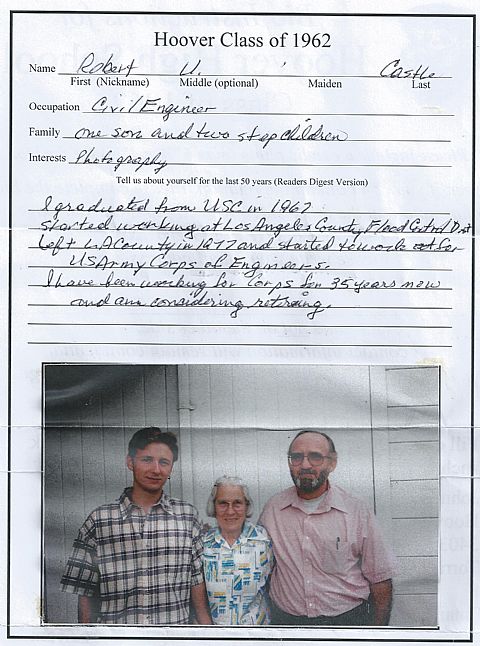 Hoover Class of 1962
Name Robert U. Castle
First (Nickname) Middle (optional) Maiden Last
Occupation Civil Engineer
Family one son and two step children
Interests Photography
Tell us about yourself for the last 50 years (Readers Digest Version)
I graduated from USC in 1967
started working at Los Angeles County Flood Control Dist
Left LA County in 1977 and started to work for
US Army Corps of Engineers.
I have been working for Corps for 35 years now
and am considering retiring.